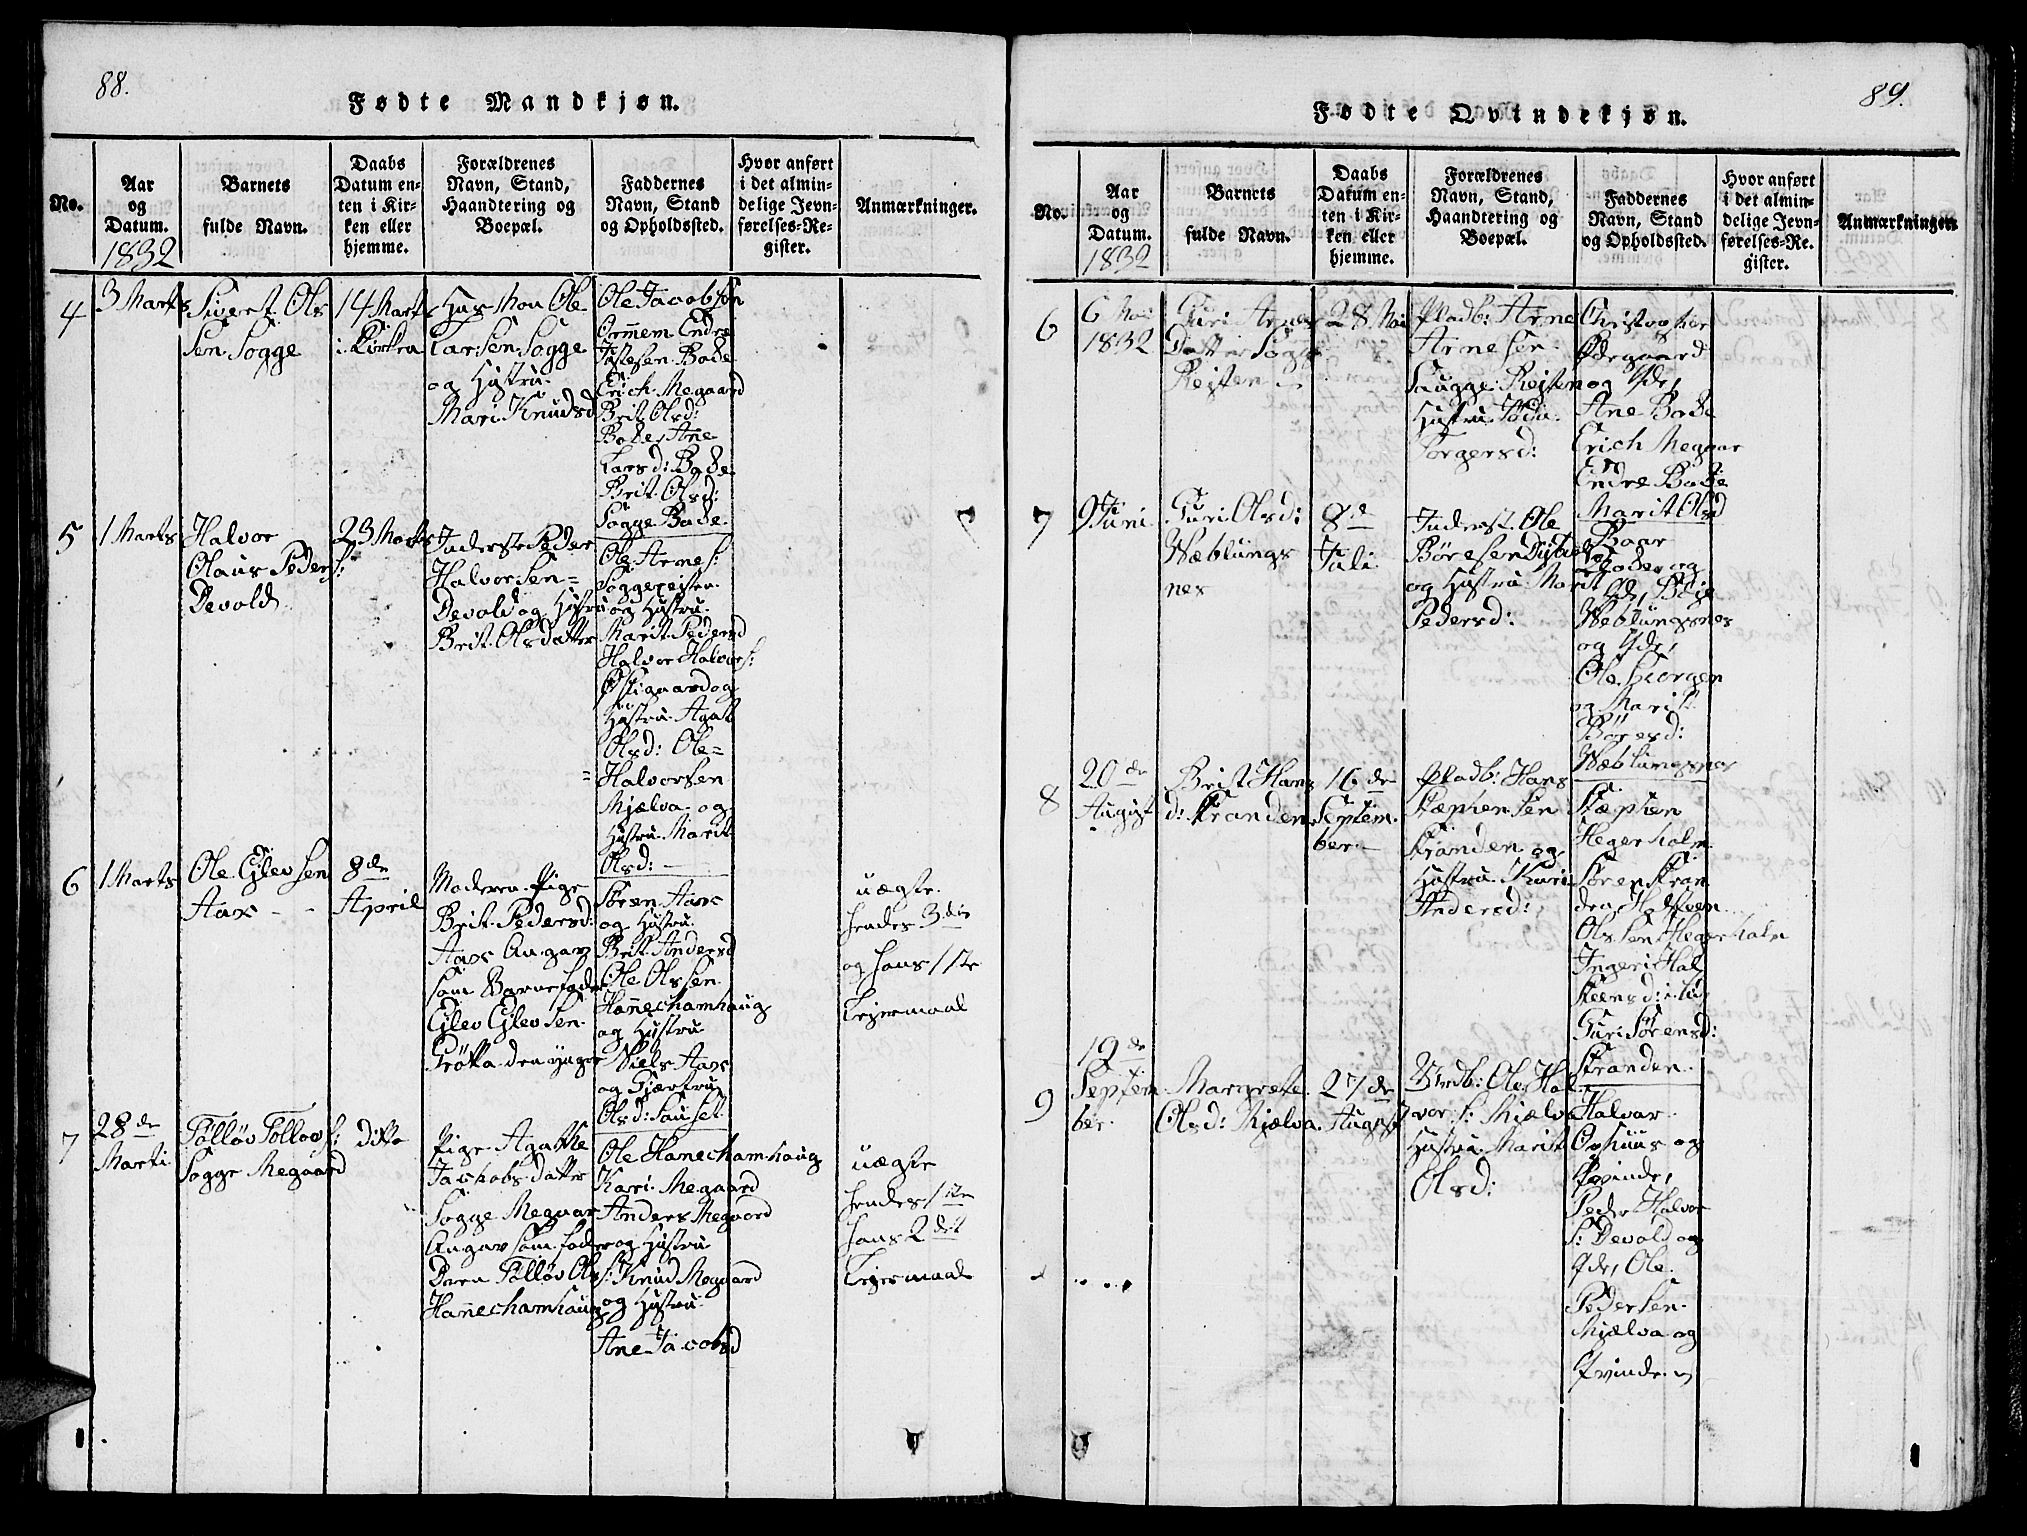 88.
Fødte Mandkjøn.
No.
Aar
og
Datum.
1832
Barnets
fulde Navn.
Daabs
Datum en-
ten i Kir-
ken eller
hjemme.
Forældrenes
Navn, Stand,
Haandtering og
Boepæl.
Faddernes
Navn, Stand
og Opholdssted.
Hvor anført
i det almin-
delige Jevn-
førelses-Re-
gister.
Anmærkninger.
4
3 Marts
Sivert Ols
Sen Sogge
14 Marts
i Kirken
Husmon Ole
Larsen Sogge
og Hustru
Mari Knudsd
Ole Jacobsen
Ormem Endre
Jostesen Bode
Erich Megaard
Brit Olsd:
Bode, Ane
Larsd: Bode
Brit Olsd:
Sogge Bode
5
1 Marts
Halvor
Olaus Peders:
Devold
23 Marts
Inderst Peder
Halvorsen
Devold og Hustru
Brit Olsdatter
Ole Arnes:
Soggerejten
og Hustru
Marit Pedersd
Halvor Halvors:
Østigaard og
Hustru Agat
Olsd: Ole
Halvorsen
Mjelva og
Hustru Marit
Olsd:
6
1 Marts
Ole Ejlevsen
Aas
8de
April
Moderen Pige
Brit Pedersd:
Aas Angav
som Barnefader
Ejlev Ejlevsen
Grøtta den yngre
Sören Aas
og Hustru
Brit Andersd
Ole Olssen
Hannechamhaug
og Hustru
Niels Aas
og Gjertru
Olsd: Sauset
uægte
hendes 3die
og hans 1ste
Lejermaal
7
28de
Marti
Tölløv Tollovs:
Sogge Megaard
ditto
Pige Agathe
Jachobsdatter
Sogge Megaar
Angav som fader
Dren Tölløv Ols:
Hannechamhaug
Ole Hanechamhaug
Kari Megaard
Anders Megaard
og Hustru
Knud Megaard
og Hustru
Ane Jacobsd
uægte
hendes 1ste
hans 2det
Lejermaal
89.
Fødte Qvindekjøn.
No.
Aar
og
Datum.
1832
Barnets
fulde Navn.
Daabs
Datum en-
ten i Kir-
ken eller
hjemme.
Forældrenes
Navn, Stand,
Haandtering og
Boepæl.
Faddernes
Navn, Stand
og Opholdssted.
Hvor anført
i det almin-
delige Jevn-
førelses-Re-
gister.
Anmærkninger.
6
6 Mai
1832
Guri Arnes
Datter Sogge
Rejten
28 Mai
Pladb: Arne
Arnesen
Saugge Rejten
Hustru
Torgersd:
Christopher
Ødegaard
og Qde,
Ane Bode
Erich Megaar
Endre Bode
Marit Olsd
7
9 Juni
Guri Olsd:
Wæblungs
nes
8de
Juli
Inderst Ole
Böresen
og Hustru Marit
Pedersd:
Baar
og
Qde,
Weblungsnes
og Qde,
Ole
og Marit
Böresd:
Wæblungsnes
8
20de
August
Brit Hans
d: Stranden
16de
Septem
ber
Pladb: Hans
Stephensen
Stranden og
Hustru Kari
Andersd:
Stephen
Hegerholm
Sören Stran
den, Halsteen
Olssen Hegerholm
Ingeri Hal
steensd:
Guri Sörensd:
Stranden
9
19de
Septem
ber
Margrete
Olsd: Mjelva
27de
August
Ole Hal
vors: Mjelva
Hustru Marit
Olsd:
Halvor
Oshuus og
Qvinde,
Peder Halvor
s: Devold og
Qde, Ole
Pedersen
Mjelva og
Qvinde